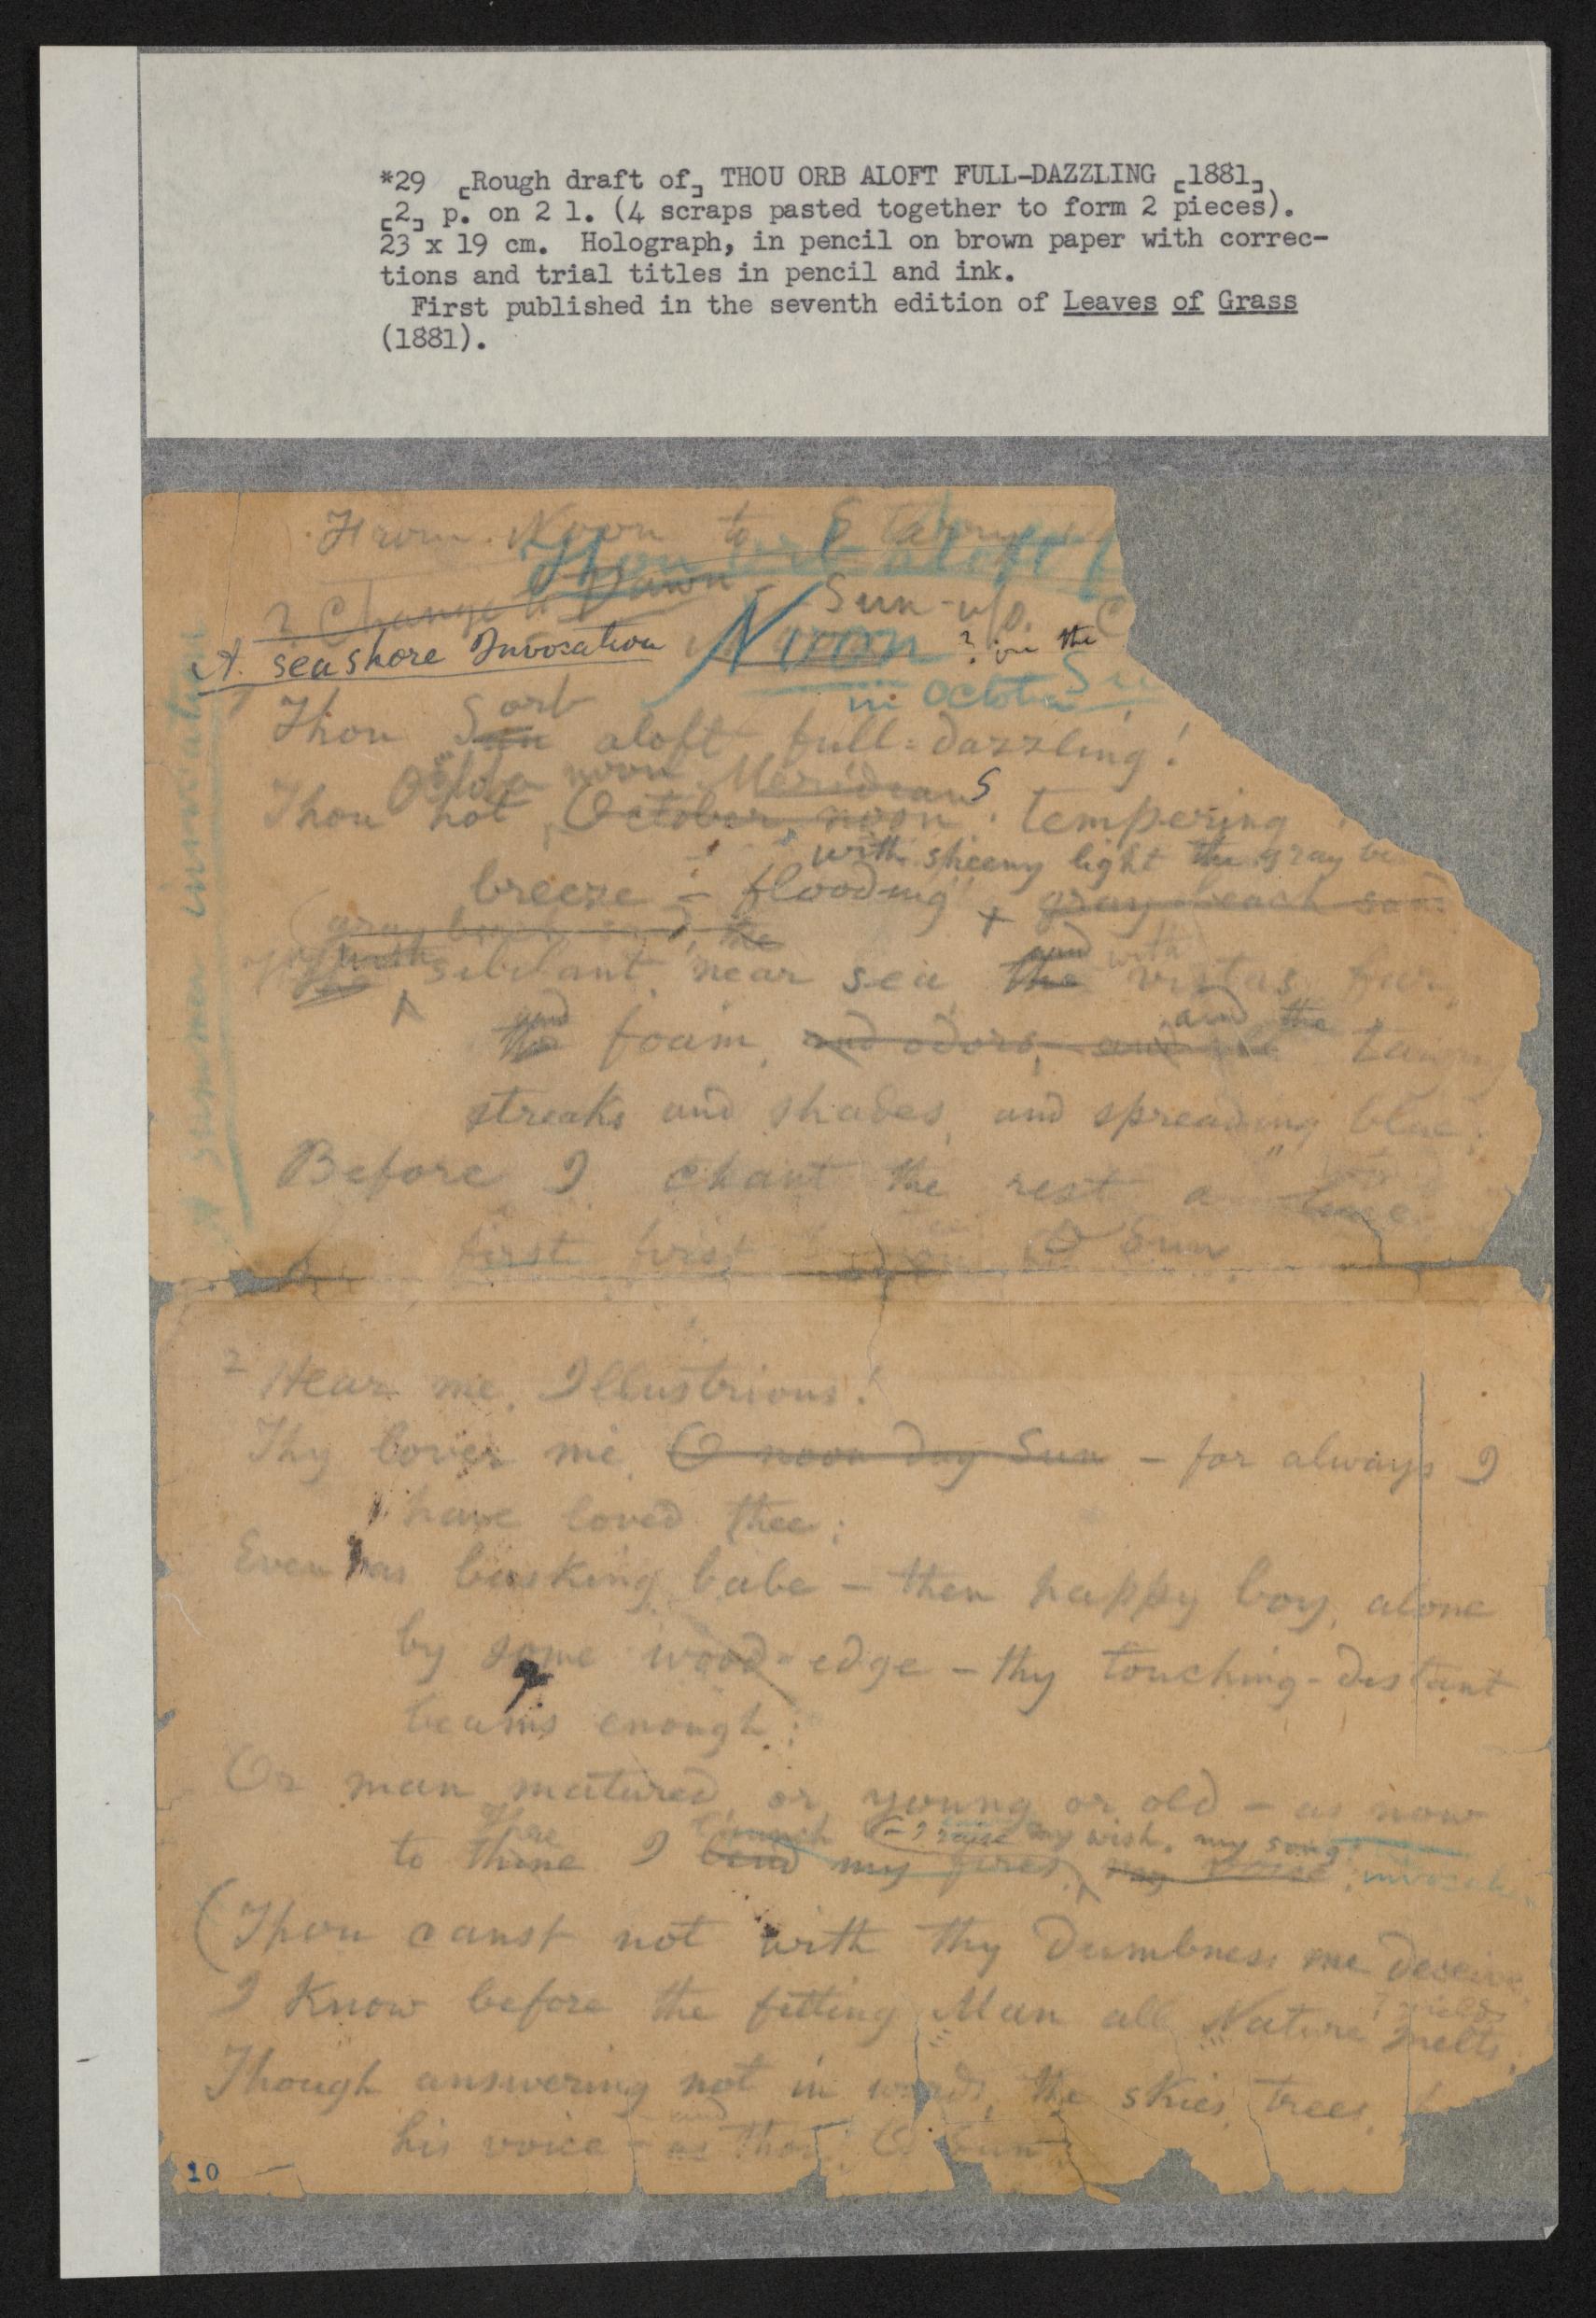 *29 [Rough draft of] THOU ORB ALOFT FULL-DAZZLING [1881]
[2] p. on 2 l. (4 scraps pasted together to form 2 pieces).
23 x 19 cm. Holograph, in pencil on brown paper with correc-
tions and trial titles in pencil and ink.
First published in the seventh edition of Leaves of Grass
(1881).
From Noon to
Thou orb aloft f
? Change to Dawn
Sun-up. C
A seashore Invocation
Noon ? in the
in Octo Su
A summer invocation
orb
Thou Sun aloft full-dazzling!
October noon Meridians
Thou hot October noon tempering
with sheeny light the gray be
breeze - flooding gray beach sand
(gray beach sand, the
sibilant near sea the vistas far,
and with
and and the
the foam, and odors, and the tawny
streaks and shades, and spreading blue;
Before I chant the rest a
first first O Sun
2 Hear me Illustrious!
Thy lover me, O noon day Sun - for always I
have loved thee;
Even as basking babe - then happy boy, alone
by some wood-edge - thy touching-distant
beams enough;
Or man matured, or young or old - as now
There launch - I raise my wish, my song
to thine I bend my fires, my voice invocation
(Thou canst not with thy dumbness me deceive,
I Know before the fitting Man all Nature melts,
yields
Though answering not in words, the skies, trees, h
and
his voice - as thou O Sun
10